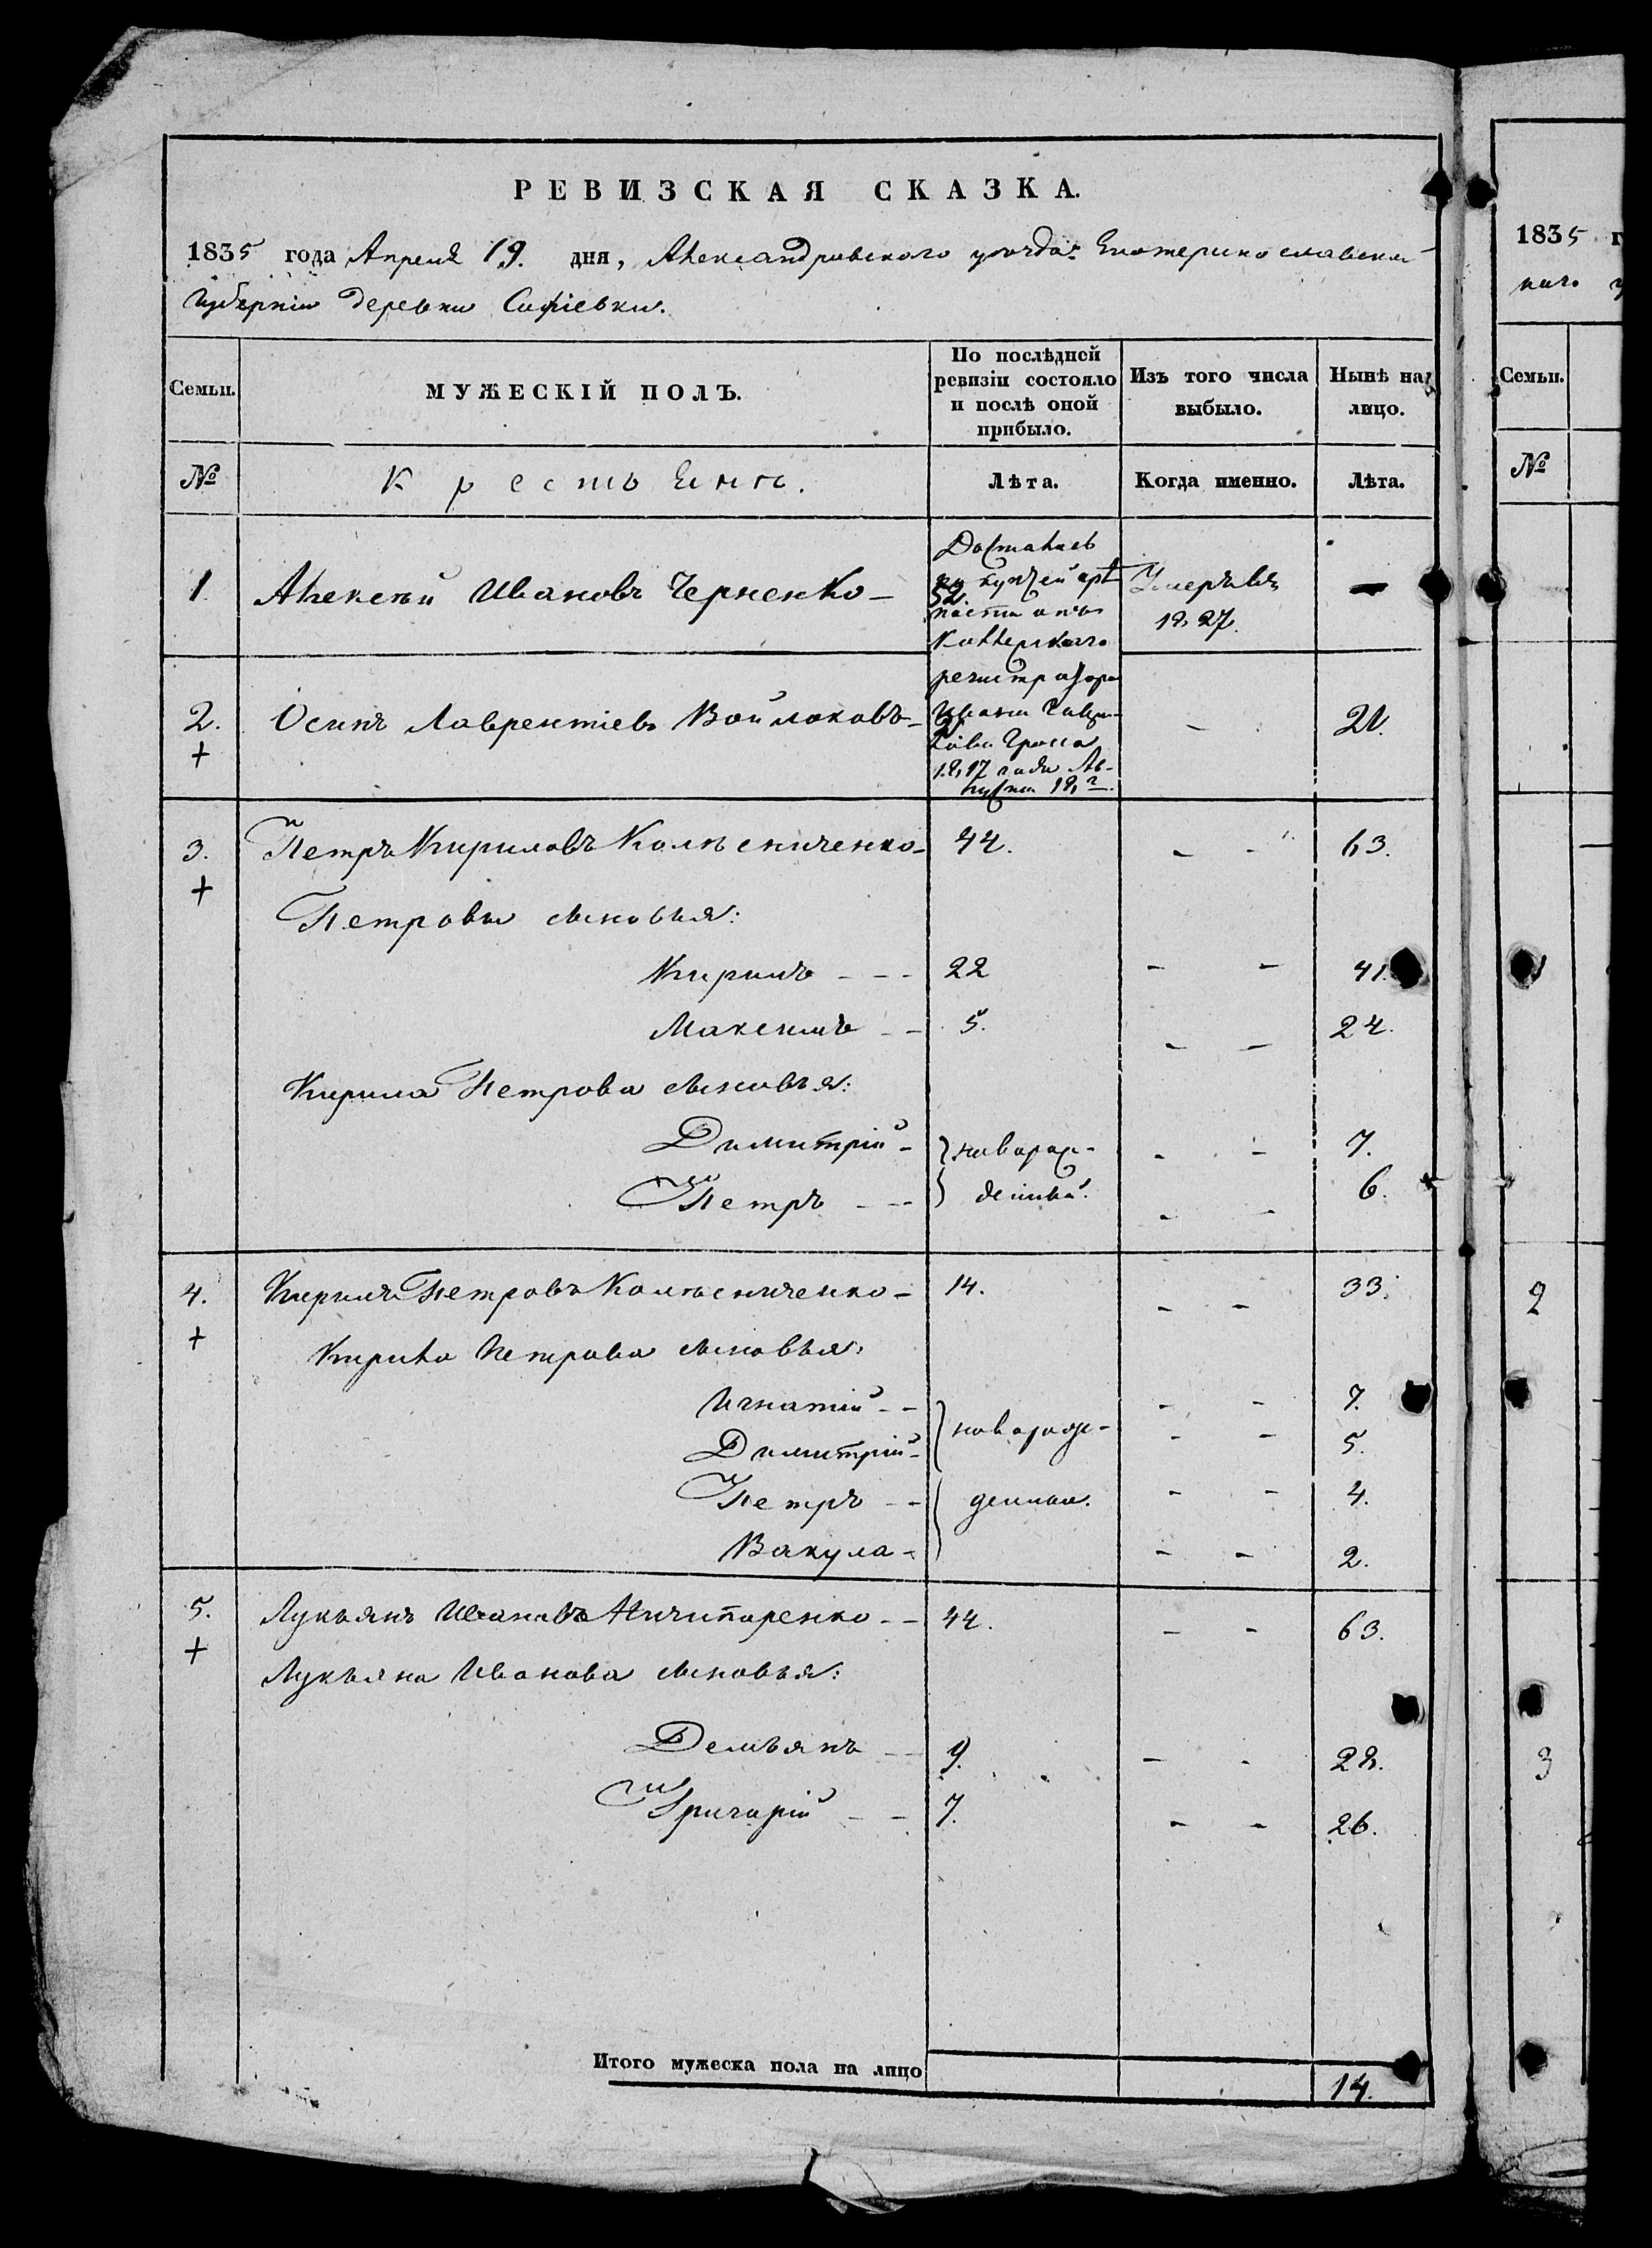 РЕВИЗСКАЯ СКАЗКА.
1835 года Апреля 19. дня, Александровского уезда Екатеринославской
Губерніи деревни Софіевки.
Семьи. МУЖЕСКІЙ ПОЛЪ. По послѣдней ревизіи состояло и послѣ оной прибыло. Изъ того числа выбыло. Нынѣ на лицо.
№ Крестьяне. Лѣта. Когда именно. Лѣта.
Достались
1 Алексѣй Ивановъ Черненко — по купчей крѣ- Умеръ въ —
52.
пости отъ 1827.
Коллежскаго
регистратора
2. Осипъ Лаврентіевъ Войлоковъ — Ивана - 21.
+
Гросса
1817 года Ав-
густа 18
3. Петръ Кириловъ Колѣсниченко — 44. - - 63.
+
Петровы сыновья:
Кирилъ - - - 22 - - 41.
Максимъ - - 5. - - 24.
Кирила Петрова сыновья:
Димитрій - новорож- - - 7.
Петръ - - денные. - - 6.
4. Кирилъ Петровъ Колѣсниченко — 14. - - 33.
+
Кирила Петрова сыновья:
Игнатій - - - - 7.
Димитрій - новорож- - - 5.
Петръ - - денные. - - 4.
Вакула - - - 2.
5. Лукьянъ Ивановъ Ничипоренко - - 44. - - 63.
+
Лукьяна Иванова сыновья:
Демьянъ - - 9. - - 28.
Григорій - - 7. - - 26.
Итого мужеска пола на лицо 14.
1835 г
Семьи.
№
1
2
3